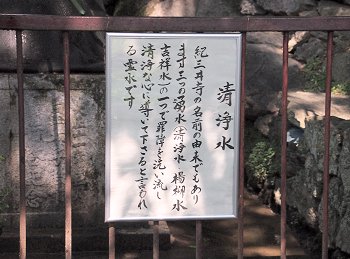 清浄水
紀三井寺の名前の由来でもあり
ます三つの湧水(清浄水 楊柳水
吉祥水)の一つで罪障を洗い流し
清浄な心に導いて下さると言われ
る霊水です